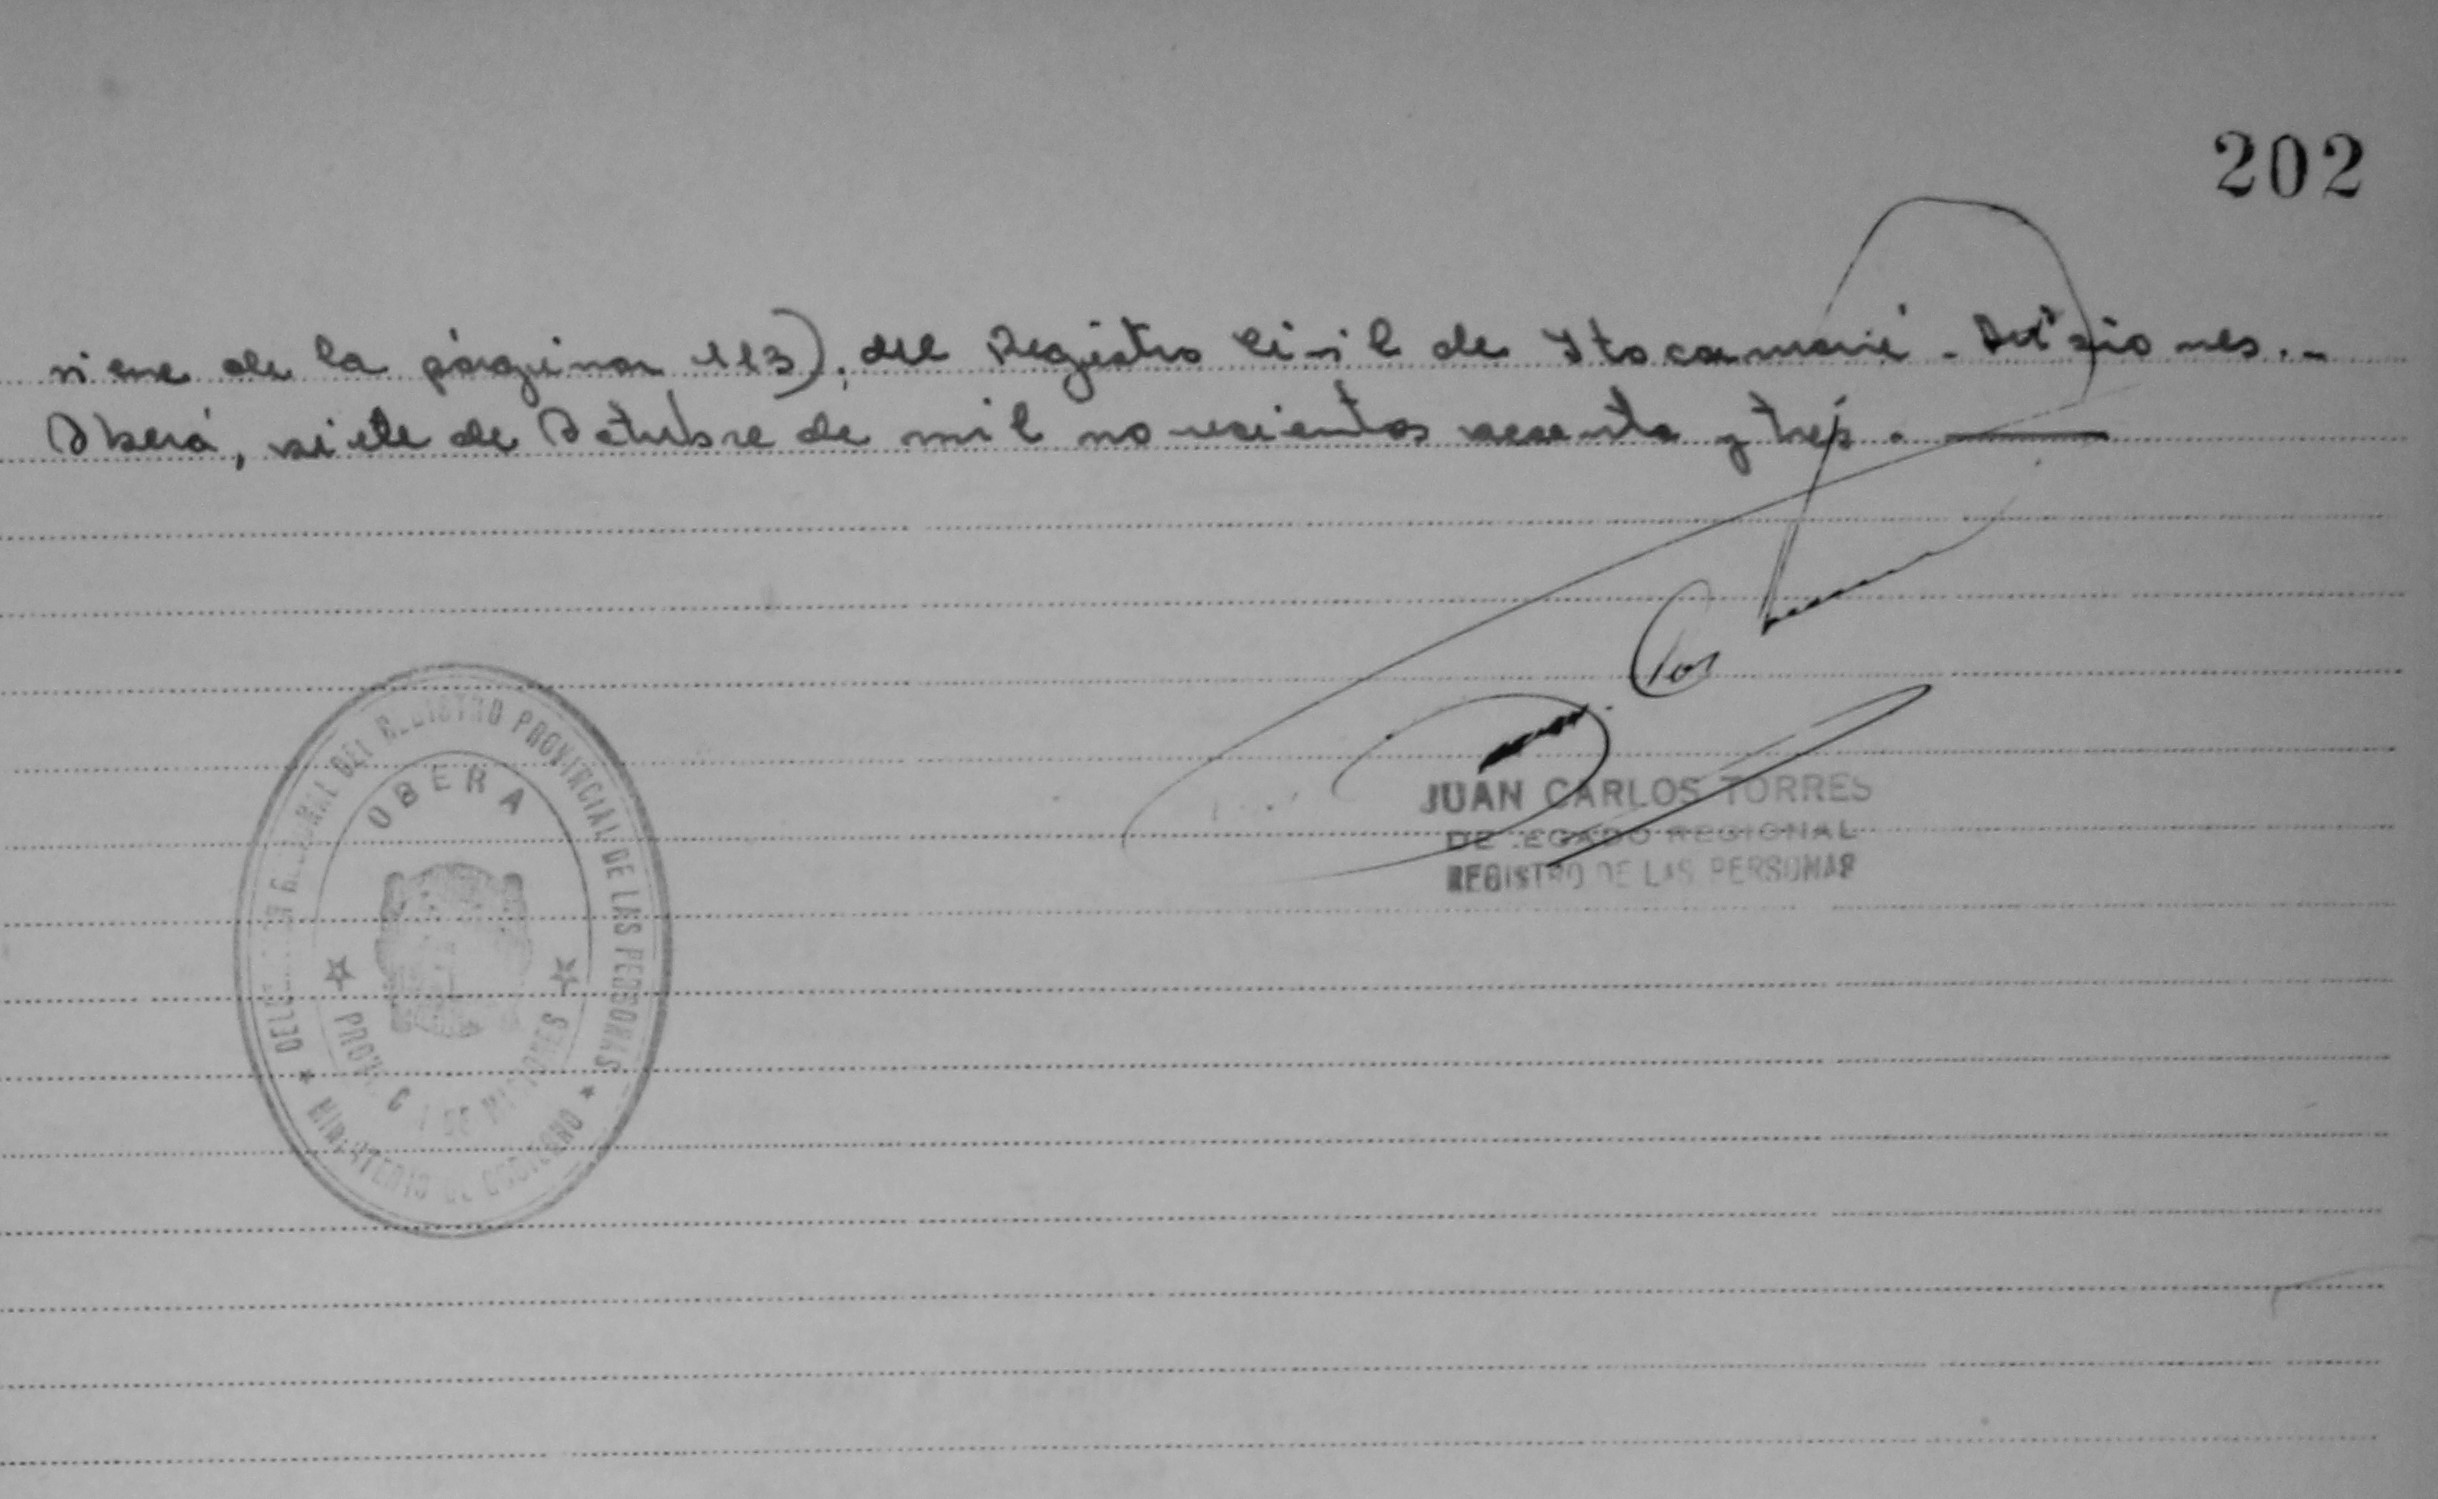 202
viene de la página 113). del Registro Civil de Itacaruaré - Misiones.-
Oberá, siete de Octubre de mil novecientos sesenta y tres.
JUAN CARLOS TORRES
DELEGADO REGIONAL
REGISTRO DE LAS PERSONAS
DEL REGISTRO PROVINCIAL DE LAS PERSONAS
OBERA
PROVINCIA DE MISIONES
MINISTERIO DE GOBIERNO